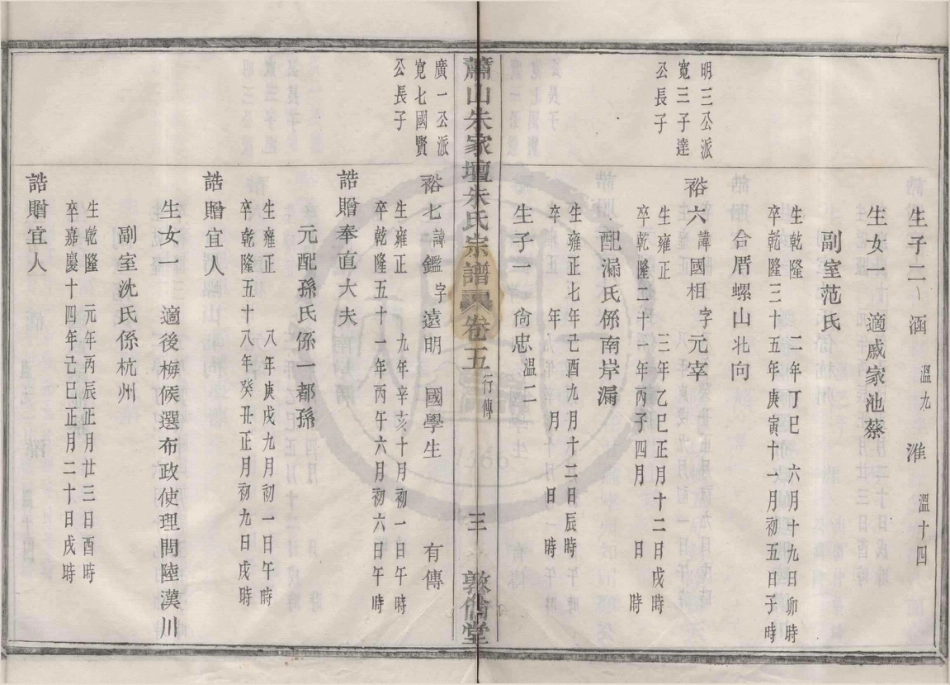 生子二 涵 溫九 淮 溫十四
生女一 適戚家池蔡
副室范氏
生乾隆 二年丁巳 六月十九日卯時
卒乾隆三十五年庚寅十一月初五日子時
合厝螺山北向
明三公派
寬三子達
公長子
裕六 諱國相 字元宰
生雍正 三年乙巳正月十二日戌時
卒乾隆二十一年丙子四月 日 時
配漏氏係南岸漏
生雍正七年己酉九月十二日辰時
卒 年 月 日 時
生子一 俞忠 溫二
蕭山朱家壇朱氏宗譜 卷五 行傳 三 敦倫堂
廣一公派
寬七國賢
公長子
裕七 諱鑑 字遠明 國學生 有傳
生雍正 九年辛亥十月初一日午時
卒乾隆五十一年丙午六月初六日午時
誥贈奉直大夫
元配孫氏係一都孫
生雍正 八年庚戌九月初一日午時
卒乾隆五十八年癸丑正月初九日戌時
誥贈宜人
生女一 適後梅候選布政使理問陸漢川
副室沈氏係杭州
生乾隆 元年丙辰正月廿三日酉時
卒嘉慶十四年己巳正月二十日戌時
誥贈宜人